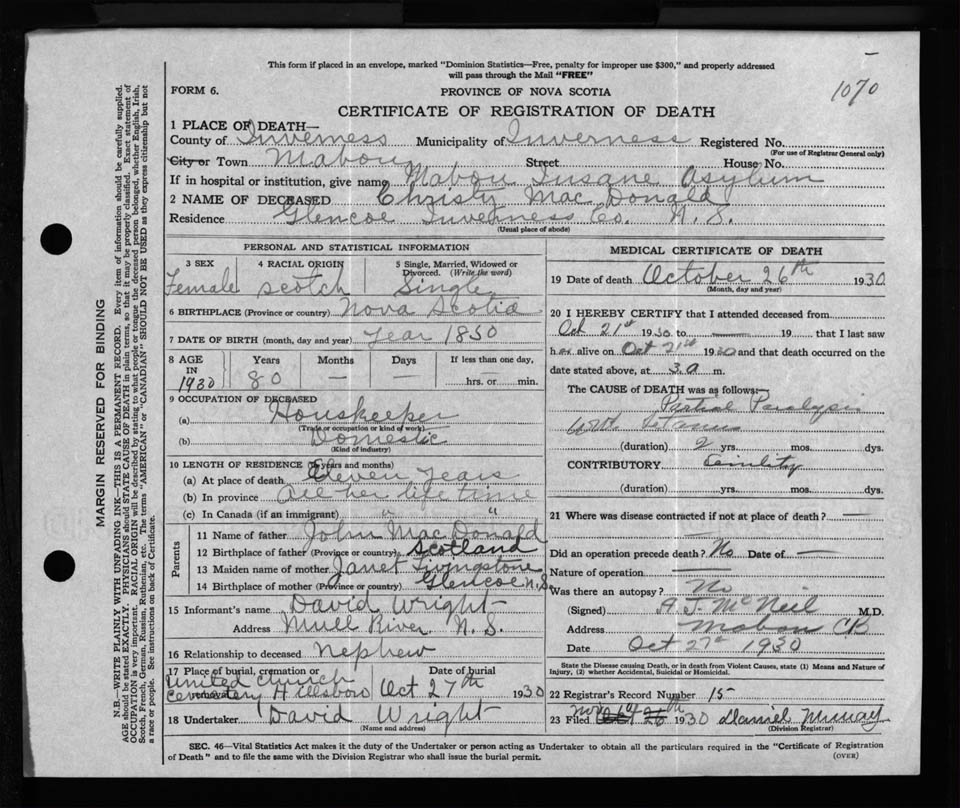 This form if placed in an envelope, marked "Dominion Statistics—Free, penalty for improper use $300," and properly addressed
will pass through the Mail "FREE"
1070
FORM 6.
PROVINCE OF NOVA SCOTIA
CERTIFICATE OF REGISTRATION OF DEATH
1 PLACE OF DEATH—
County of Inverness Municipality of Inverness Registered No.
(For use of Registrar General only)
City or Town Mabou Street House No.
If in hospital or institution, give name Mabou Insane Asylum
2 NAME OF DECEASED Christy Mac Donald
Residence Glencoe Inverness Co. N. S.
(Usual place of abode)
PERSONAL AND STATISTICAL INFORMATION
3 SEX 4 RACIAL ORIGIN 5 Single, Married, Widowed or Divorced. (Write the word)
Female Scotch Single
6 BIRTHPLACE (Province or country) Nova Scotia
7 DATE OF BIRTH (month, day and year) Year 1850
8 AGE IN 1930 Years Months Days If less than one day,
80 — — hrs. or min.
9 OCCUPATION OF DECEASED
(a) Houskeeper
(Trade or occupation or kind of work)
(b) Domestic
(Kind of industry)
10 LENGTH OF RESIDENCE (in years and months)
(a) At place of death Eleven Years
(b) In province All her life time
(c) In Canada (if an immigrant) " "
Parents
11 Name of father John Mac Donald
12 Birthplace of father (Province or country) Scotland
13 Maiden name of mother Janet Livingstone
14 Birthplace of mother (Province or country) Glencoe N.S.
15 Informant's name David Wright
Address Mull River N. S.
16 Relationship to deceased nephew
17 Place of burial, cremation or removal Date of burial
United Church
Cementary Hillsboro Oct 27th 1930
18 Undertaker David Wright
(Name and address)
MEDICAL CERTIFICATE OF DEATH
19 Date of death October 26th 1930
(Month, day and year)
20 I HEREBY CERTIFY that I attended deceased from
Oct 21st 1930 to — 19 that I last saw
her alive on Oct 21st 1930 and that death occurred on
date stated above, at 3 a m.
The CAUSE of DEATH was as follows:—
Partial Paralysis
with
(duration) 2 yrs. mos. dys.
CONTRIBUTORY Senility
(duration) yrs. mos. dys.
21 Where was disease contracted if not at place of death? —
—
Did an operation precede death? No Date of —
Nature of operation —
Was there an autopsy? No
(Signed) A. J. McNeil M.D.
Address Mabou CB
Date Oct 27th 1930
State the Disease causing Death, or in death from Violent Causes, state (1) Means and Nature of
Injury, (2) whether Accidental, Suicidal or Homicidal.
22 Registrar's Record Number 15
23 Filed Nov 1930 Daniel Murray
(Division Registrar)
SEC. 46—Vital Statistics Act makes it the duty of the Undertaker or person acting as Undertaker to obtain all the particulars required in the "Certificate of Registration
of Death" and to file the same with the Division Registrar who shall issue the burial permit.
(OVER)
MARGIN RESERVED FOR BINDING
N.B.—WRITE PLAINLY WITH UNFADING INK—THIS IS A PERMANENT RECORD. Every item of information should be carefully supplied.
AGE should be stated EXACTLY. PHYSICIANS should STATE CAUSE OF DEATH in plain terms, so that it may be properly classified. Exact statement of
OCCUPATION is very important. RACIAL ORIGIN will be described by stating to what people or tongue the deceased person belonged, whether English, Irish,
Scotch, French, German, Russian, Ruthenian, etc. The terms "AMERICAN" or "CANADIAN" SHOULD NOT BE USED as they express citizenship but not
a race or people. See instructions on back of Certificate.